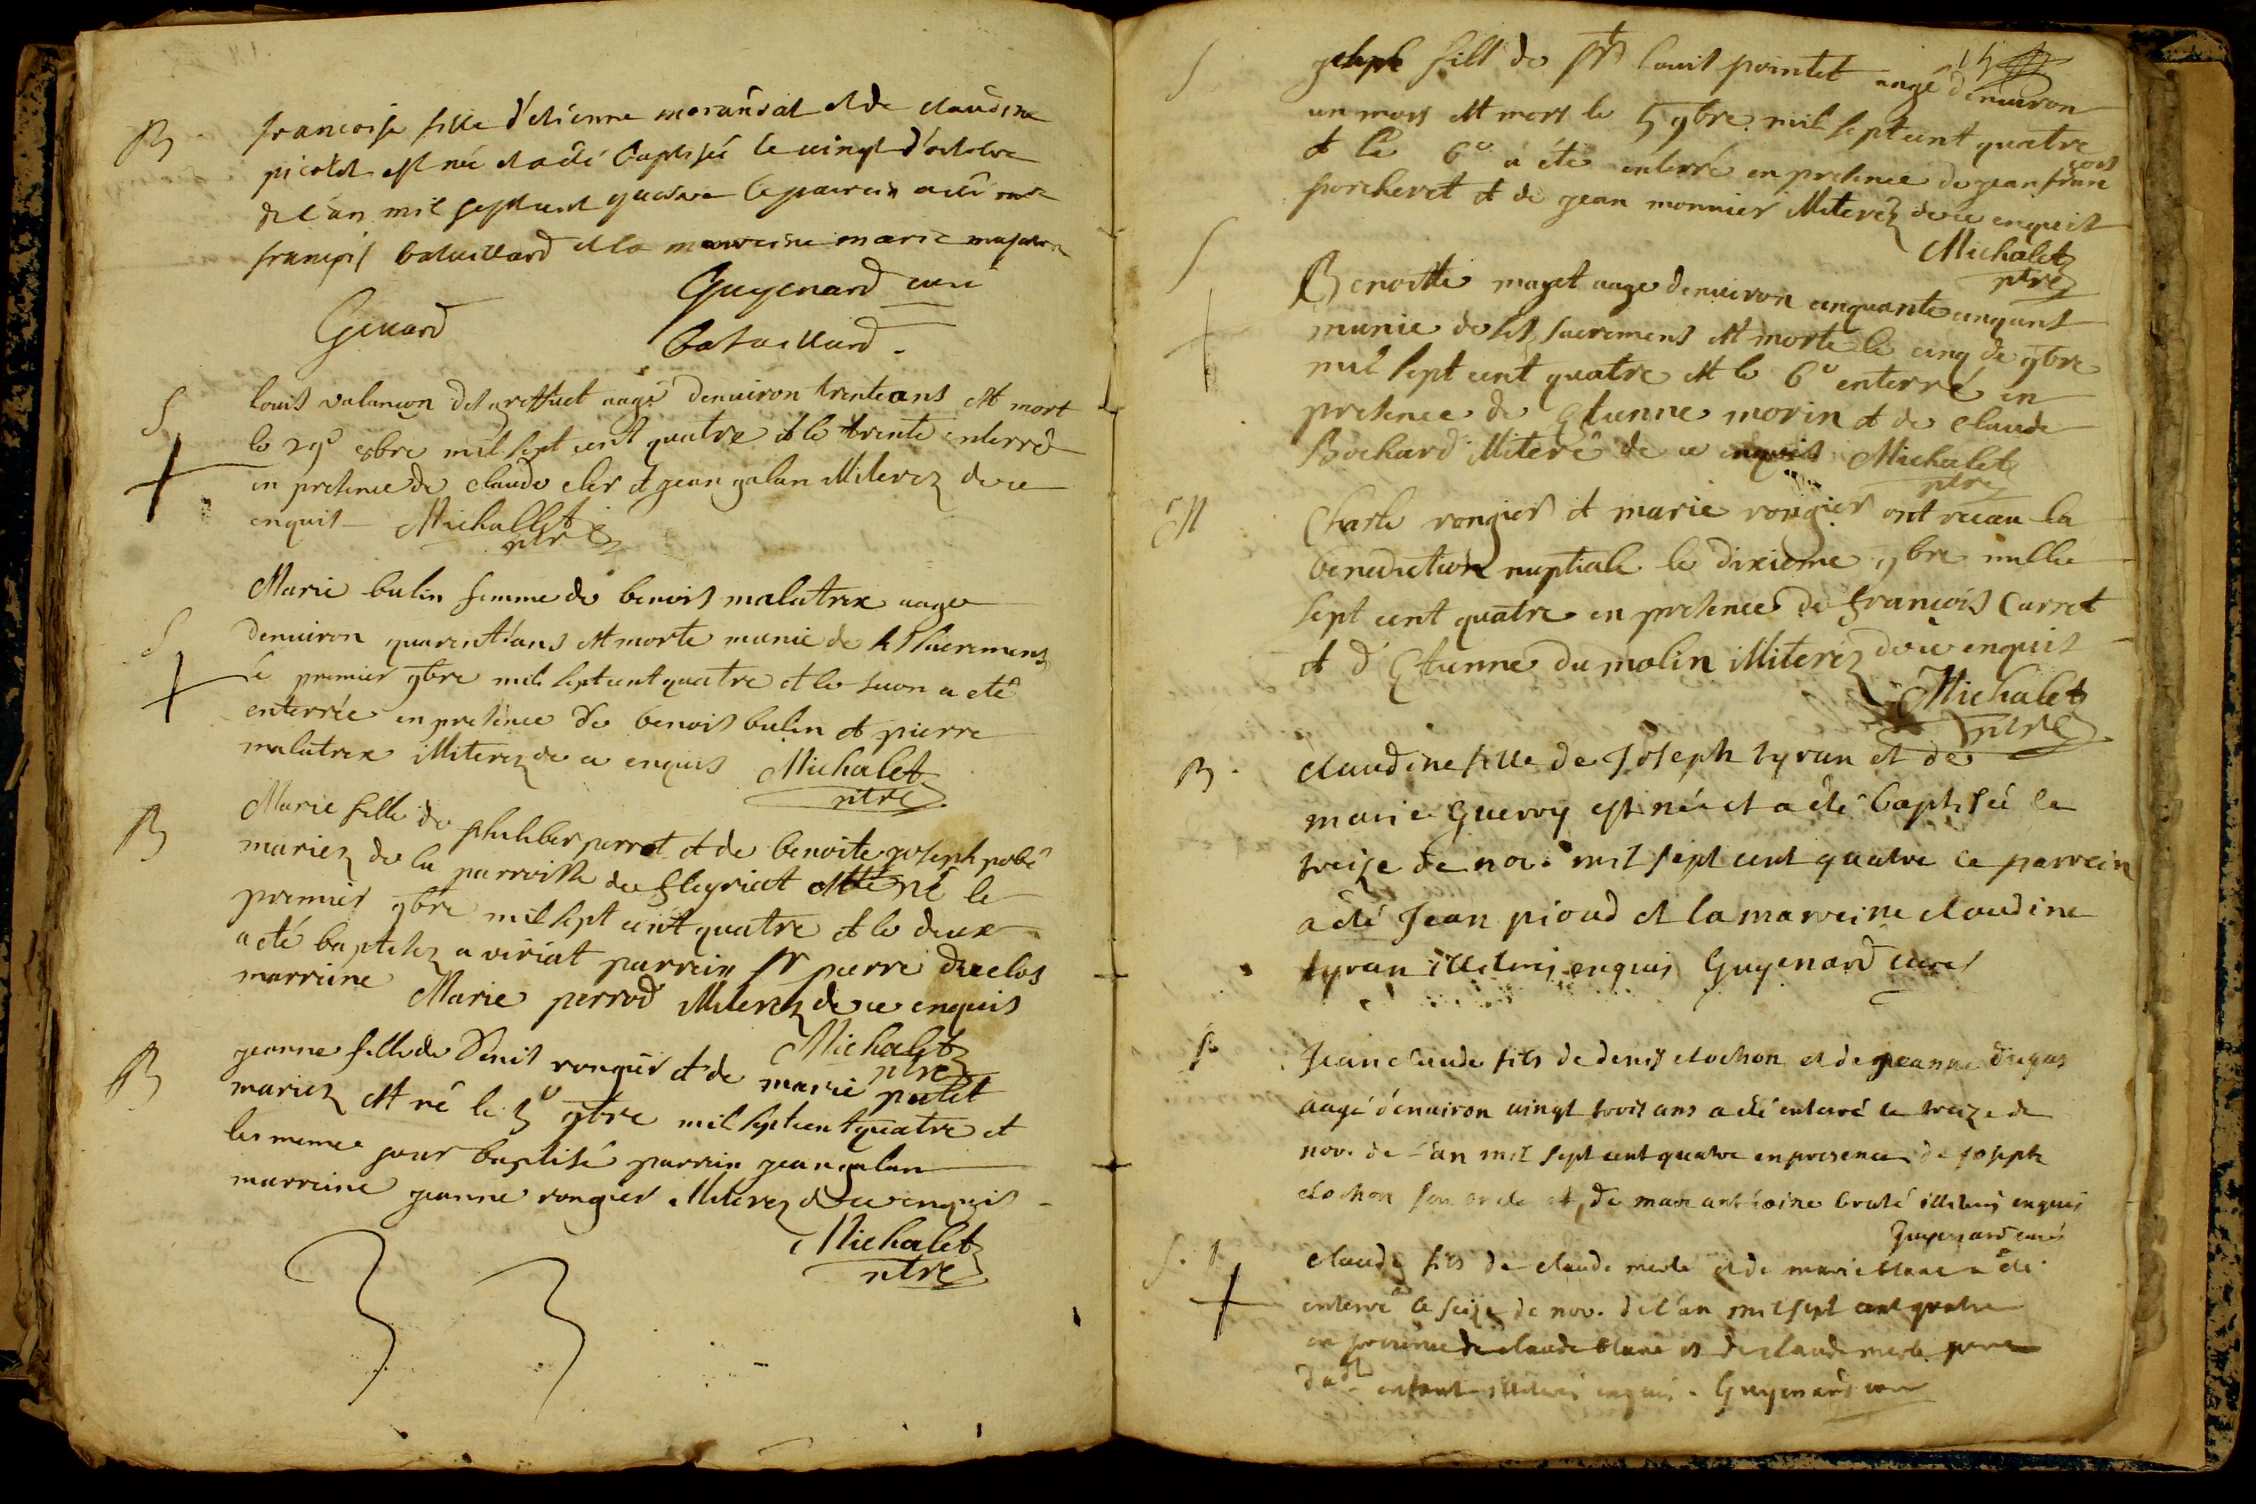 B francoise fille d'etienne morandat et de claudine
picolet est née et a été baptisée le vingt d'octobre
de l'an mil sept cent quatre le parrein a été
francois bataillard et la marreine marie
Guyenard curé
Genard bataillard.
S louis valancon des greffiet aagé denuiron trente ans est mort
le 29e 8bre mil sept cent quatre et le trente enterré
en presence de claude cler et jean galan illiterez de ce
enquis Michallet
ptre
Marie bulin femme de benois malatrex aagee
S denuiron quarent'ans est morte munie de ses sacremens
le premier 9bre mil sept cent quatre et le a eté
enterrée en presence de benois bulin et pierre
malatrex illiterez de ce enquis Michalet
ptre
B Marie fille de philiber perrot et de benoite joseph pobé
mariez de la parroisse de fleyriat est né le
premier 9bre mil sept cent quatre et le deux
a eté baptisez a viriat parrein sr pierre duclos
marreine Marie perrod illiterez de ce enquis
Michalet
ptre
B jeanne fille de denis rongier et de marie putet
mariez est né le 3e 9bre mil sept cent quatre et
les meme jour baptisé parrein jean galan
marreine jeanne rongier illiterez de ce enquis
Michalet
ptre
15
S joseph fils de sr louis pointet aagé denuiron
un mois est mort le 5 9bre mil sept cent quatre
et le 6e a été enterré en presence de jean fran
cois
porcheret et de jean monnier illiterez de ce enquis
Michalet
ptre
S Benoitte mayet aage denuiron cinquante cinq ans
munie de ses sacremens est morte le cinq de 9bre
mil sept cent quatre et le 6e enterré en
presence de Etienne morin et de claude
Bochard illiteré de ce enquis Michalet
ptre
M Charle rongier et marie rongier ont receu la
benediction nuptiale le dixieme 9bre mille
sept cent quatre en presence de francois Carret
et d'Etienne du molin illiterez de ce enquis
Michalet
ptre
B claudine fille de Joseph tyran et de
marie Guerry est née et a été baptisée le
treize de nov. mil sept cent quatre le parrein
a été Jean pioud et la marreine claudine
tyran illiterez enquis Guyenard curé
S Jean claude fils de denis clochon et de jeanne dugas
aagé d'enuiron vingt trois ans a été enterré le treize de
nov. de l'an mil sept cent quatre en presence de joseph
clochon son oncle et de marc anthoine bruté illiterez enquis
Guyenard curé
S. claude fils de claude merle et de marie blanc a été
enterré le seize de nov. de l'an mil sept cent quatre
en presence de claude blanc et de claude merle pere
dudt enfant illiterez enquis. Guyenard curé